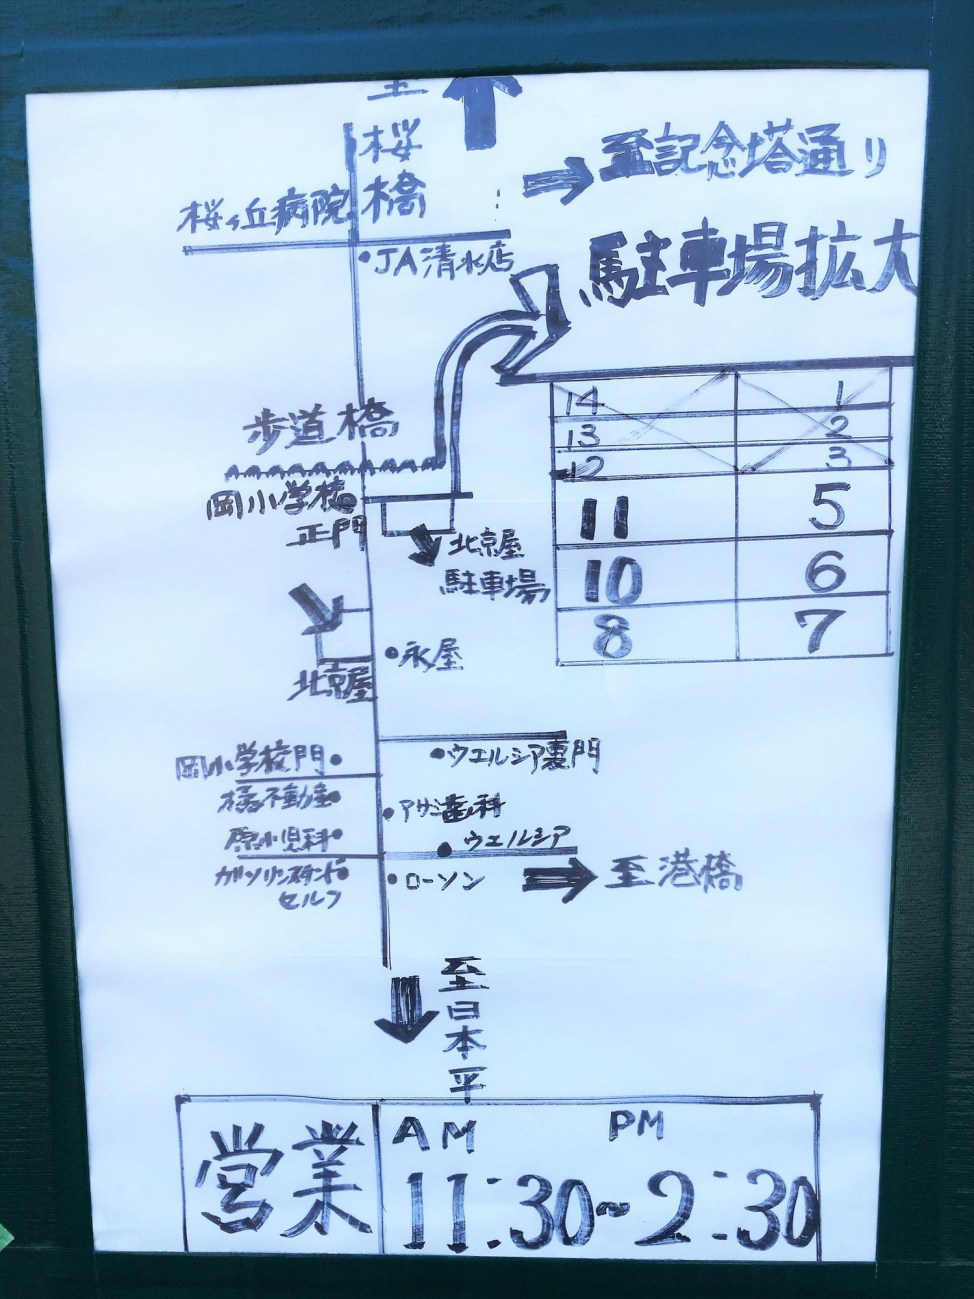 至
桜橋
至記念塔通り
桜ヶ丘病院
JA清水店
駐車場拡大
14 1
13 2
12 3
11 5
10 6
8 7
歩道橋
岡小学校
正門
北京屋
駐車場
永屋
北京屋
岡小学校門
ウエルシア裏門
橘不動産
アサミ歯科
原小児科
ウエルシア
ガソリンスタンド
セルフ
ローソン
至港橋
至日本平
営業
AM PM
11:30~2:30